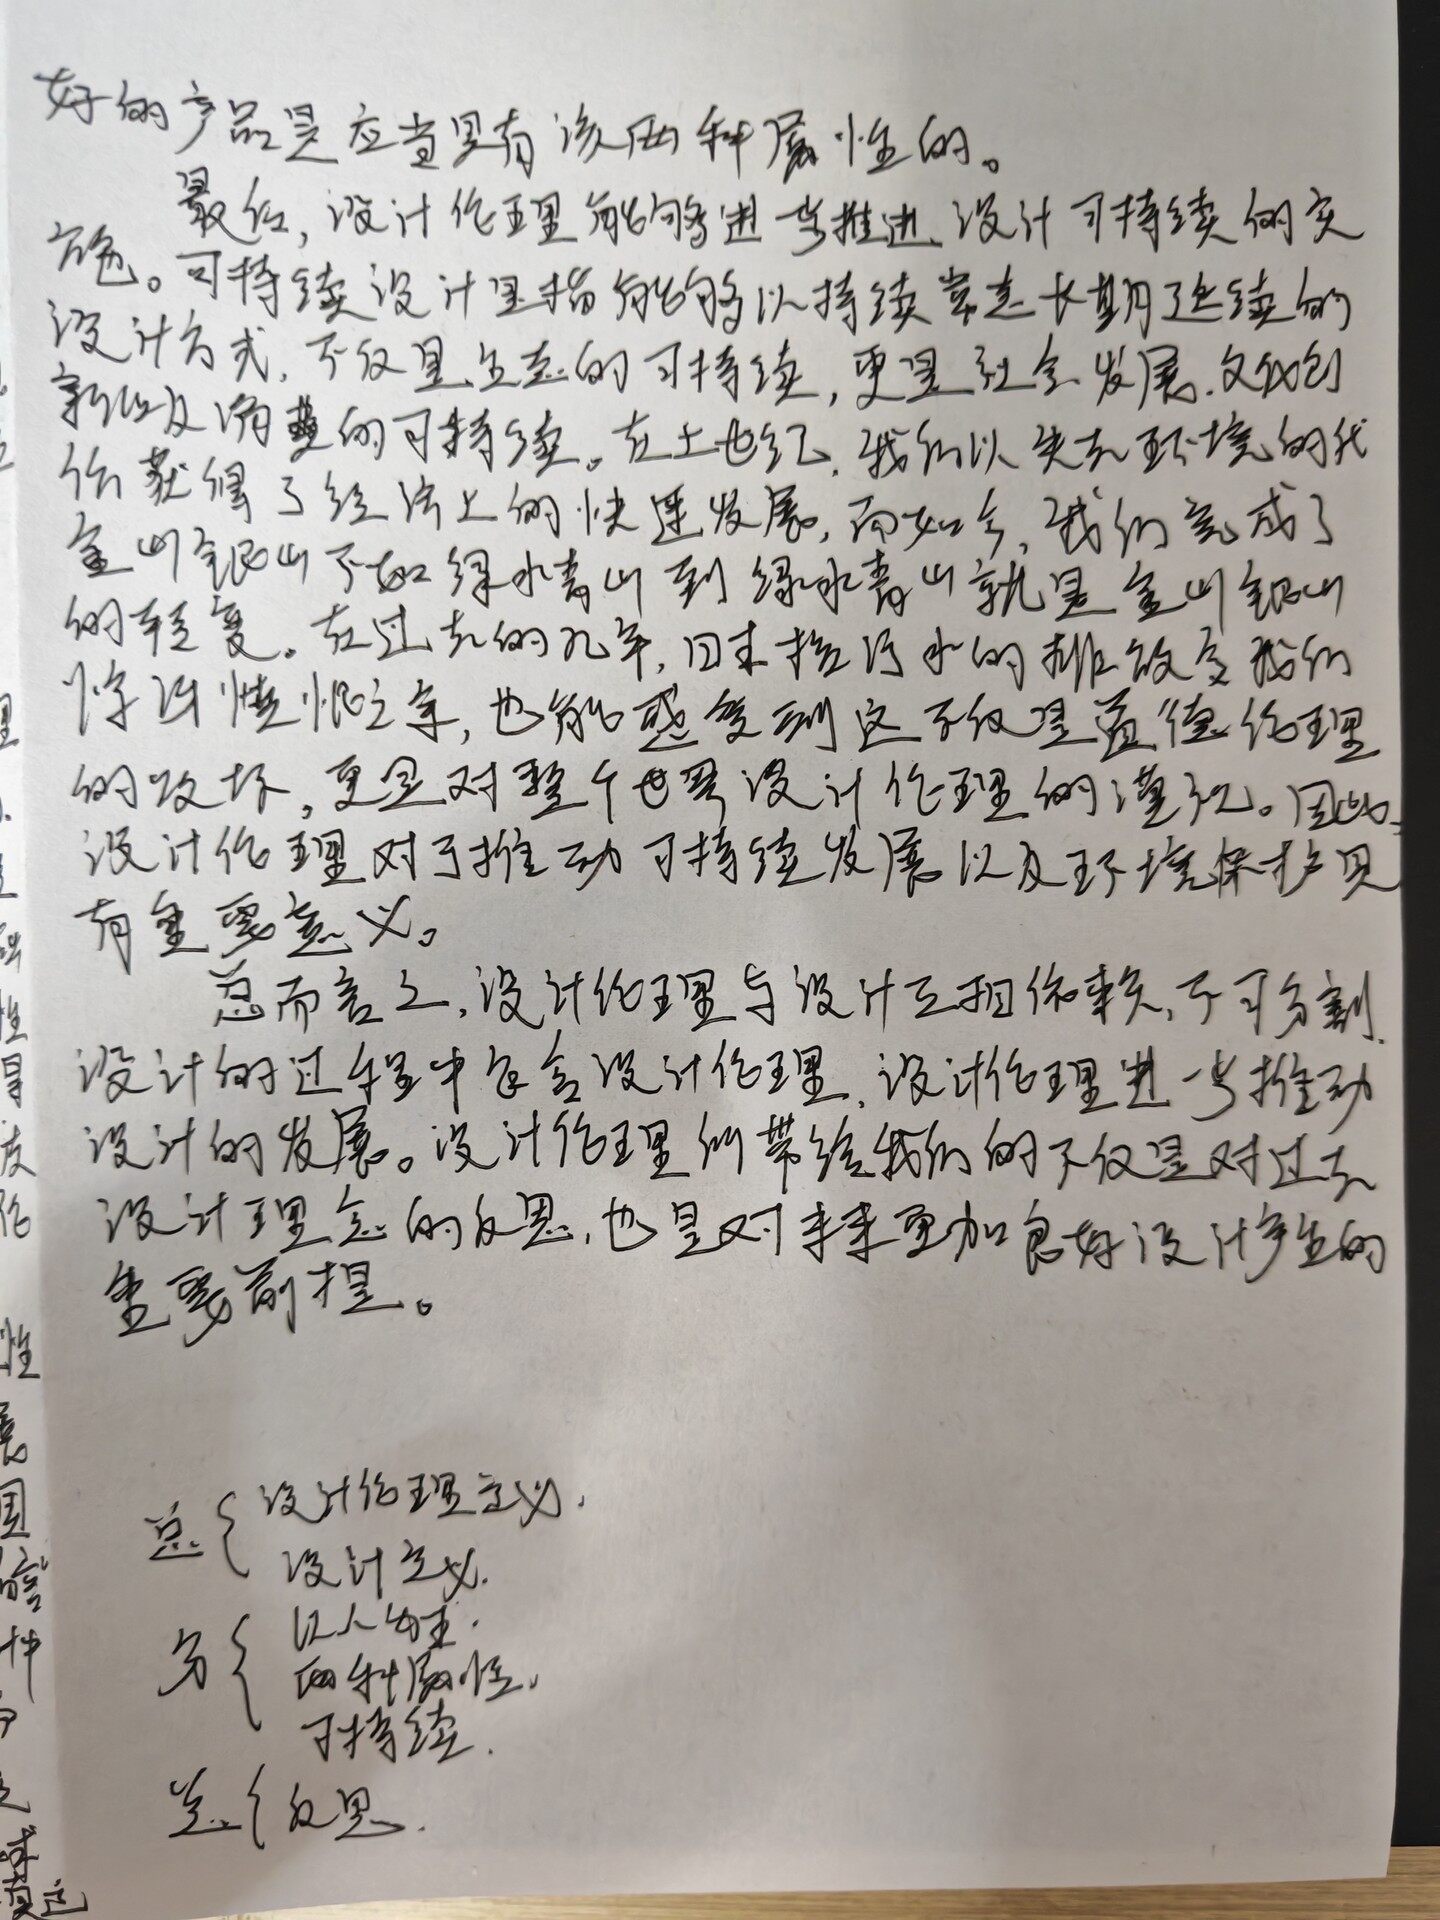 好的产品是应当具有该两种属性的。
最后，设计伦理能够进一步推进设计可持续的实
施。可持续设计是指能够以持续常态长期延续的
设计方式，不仅是生态的可持续，更是社会发展、文化创
新以及消费的可持续。在上世纪，我们以失去环境的代
价获得了经济上的快速发展，而如今，我们完成了
金山银山不如绿水青山到绿水青山就是金山银山
的转变。在过去的几年，日本核污水的排放令我们
愤恨之余，也能感受到这不仅是道德伦理
的败坏，更是对整个世界设计伦理的漠视。因此，
设计伦理对于推动可持续发展以及环境保护具
有重要意义。
总而言之，设计伦理与设计互相依赖，不可分割，
设计的过程中包含设计伦理，设计伦理进一步推动
设计的发展。设计伦理所带给我们的不仅是对过去
设计理念的反思，也是对未来更加良好设计产生的
重要前提。
总{设计伦理定义.
设计定义.
分{以人为主.
两种属性.
可持续.
总{反思.